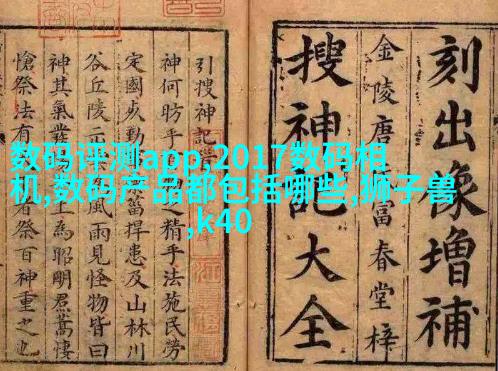 数码评测app,2017数码相
机,数码产品都包括哪些,狮子兽
,k40
刻出像增補
金陵唐富春堂梓
搜神記大全
引搜神記
神何昉乎之精手法施民勞
定國動菑捍患及山林川
谷丘陵風雨見怪物皆曰
神其氣發為昭明焄蒿悽
愴祭法有者祭百神重之也